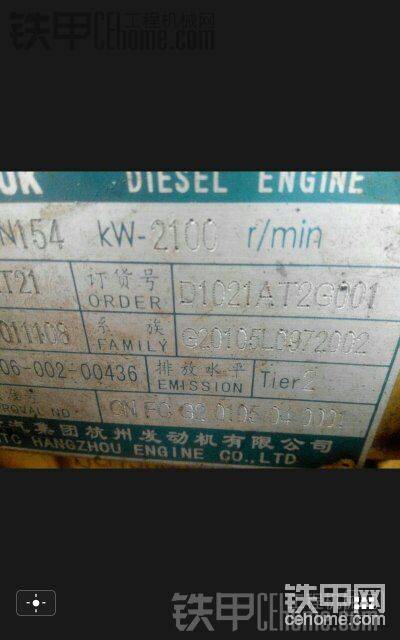 铁甲工程机械网
CEhome.com
DIESEL ENGINE
N154 kW-2100 r/min
T21 订货号 ORDER D1021AT2G001
011108 系族 FAMILY G20105L0972002
06-002-00436 排放水平 EMISSION Tier2
CN FC G2 0105 04 0001
汽集团杭州发动机有限公司
HANGZHOU ENGINE CO.,LTD
铁甲工程机械网
CEhome.com
铁甲网